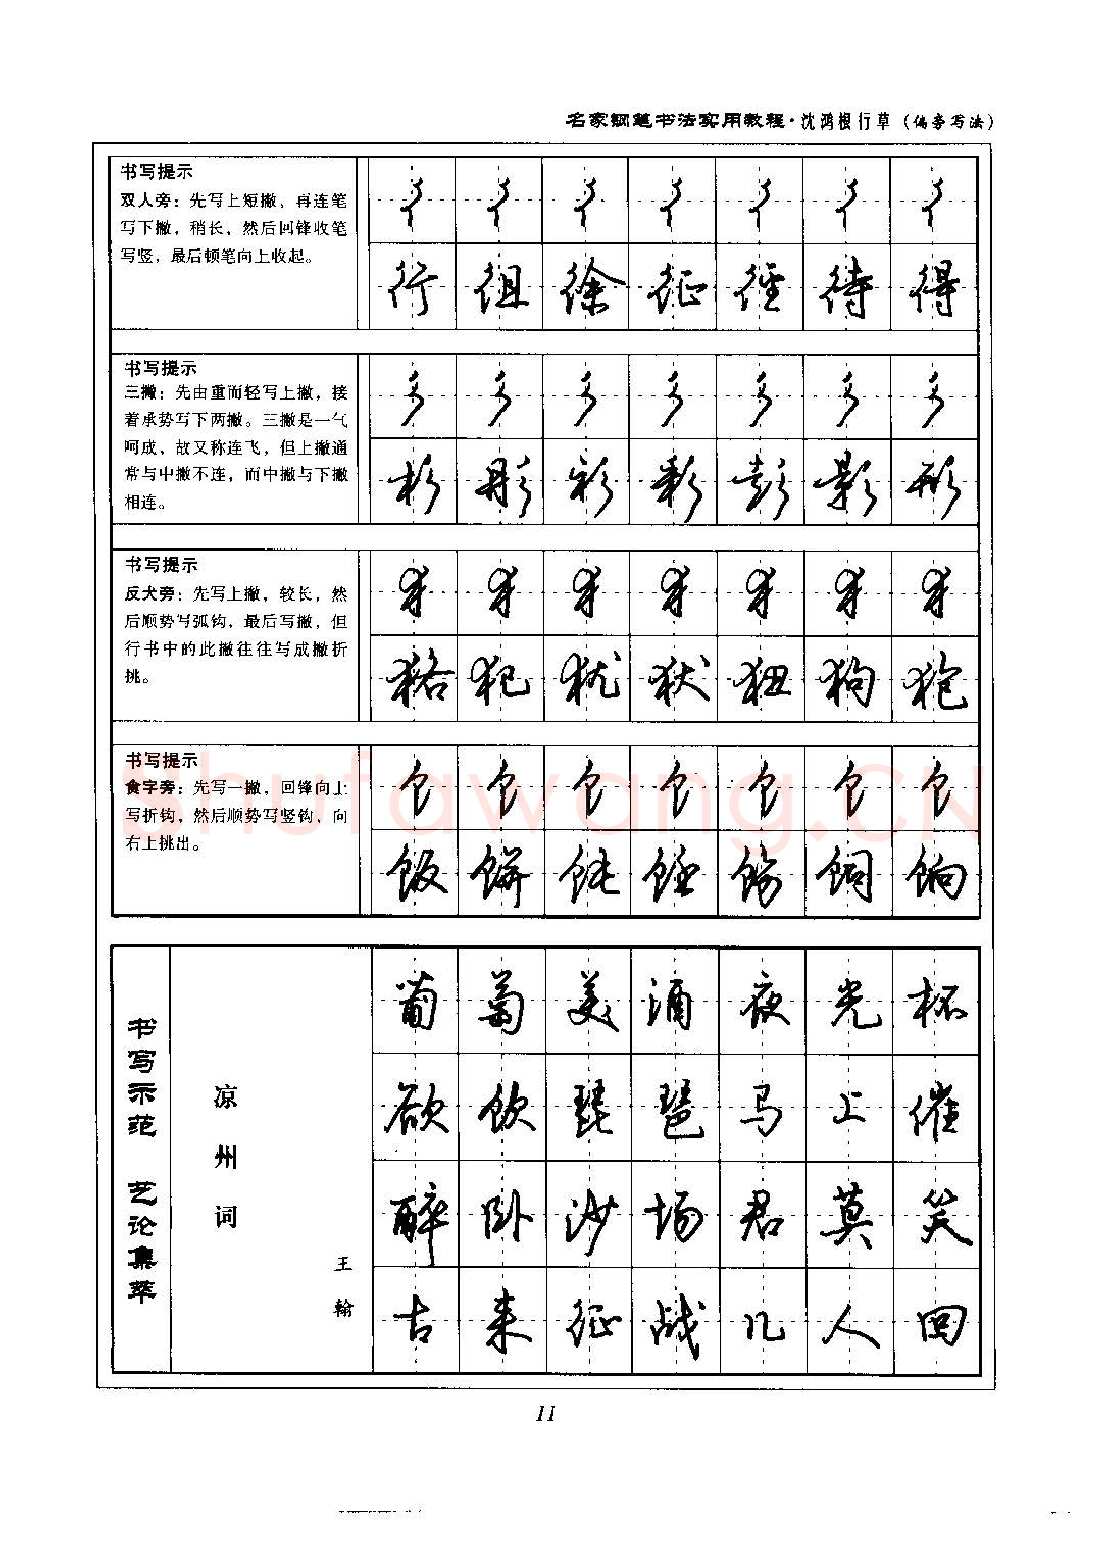 名家钢笔书法实用教程·沈鸿根行草（偏旁写法）
书写提示
双人旁：先写上短撇，再连笔
写下撇，稍长，然后回锋收笔
写竖，最后顿笔向上收起。
彳彳彳彳彳彳彳
行徂徐征径待得
书写提示
三撇：先由重而轻写上撇，接
着承势写下两撇。三撇是一气
呵成，故又称连飞，但上撇通
常与中撇不连，而中撇与下撇
相连。
彡彡彡彡彡彡彡
杉彤彩彰彭影形
书写提示
反犬旁：先写上撇，较长，然
后顺势写弧钩，最后写撇，但
行书中的此撇往往写成撇折
挑。
犭犭犭犭犭犭犭
犯犹狱狃狗狍
书写提示
食字旁：先写一撇，回锋向上
写折钩，然后顺势写竖钩，向
右上挑出。
饣饣饣饣饣饣饣
饭饼饨饧饲饷
Shufawang.CN
书写示范 艺论集萃
凉州词
王翰
葡萄美酒夜光杯
欲饮琵琶马上催
醉卧沙场君莫笑
古来征战几人回
11